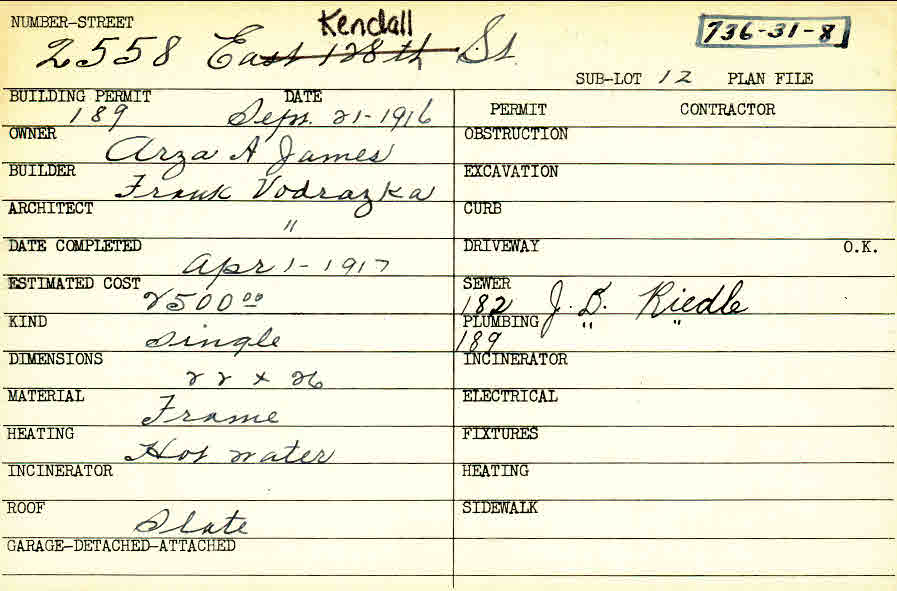 NUMBER-STREET
Kendall
2558 East 128th St.
736-31-8
SUB-LOT 12 PLAN FILE
BUILDING PERMIT DATE
189 Sept. 21-1916
OWNER
Arza A James
BUILDER
Frank Vodrazka
ARCHITECT
"
DATE COMPLETED
Apr 1-1917
ESTIMATED COST
2500 00
KIND
Single
DIMENSIONS
22 x 26
MATERIAL
Frame
HEATING
Hot water
INCINERATOR
ROOF
Slate
GARAGE-DETACHED-ATTACHED
PERMIT CONTRACTOR
OBSTRUCTION
EXCAVATION
CURB
DRIVEWAY O.K.
SEWER
182 J. B. Riedle
PLUMBING " "
189
INCINERATOR
ELECTRICAL
FIXTURES
HEATING
SIDEWALK